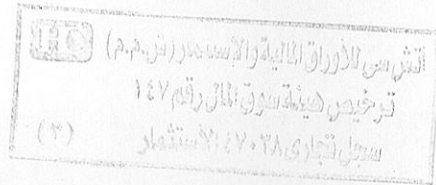 اتش سى للأوراق المالية والإستثمار (ش.م.م)
ترخيص هيئة سوق المال رقم ١٤٧
سجل تجارى ٤٧٠٣٨ الأستثمار
(٣)